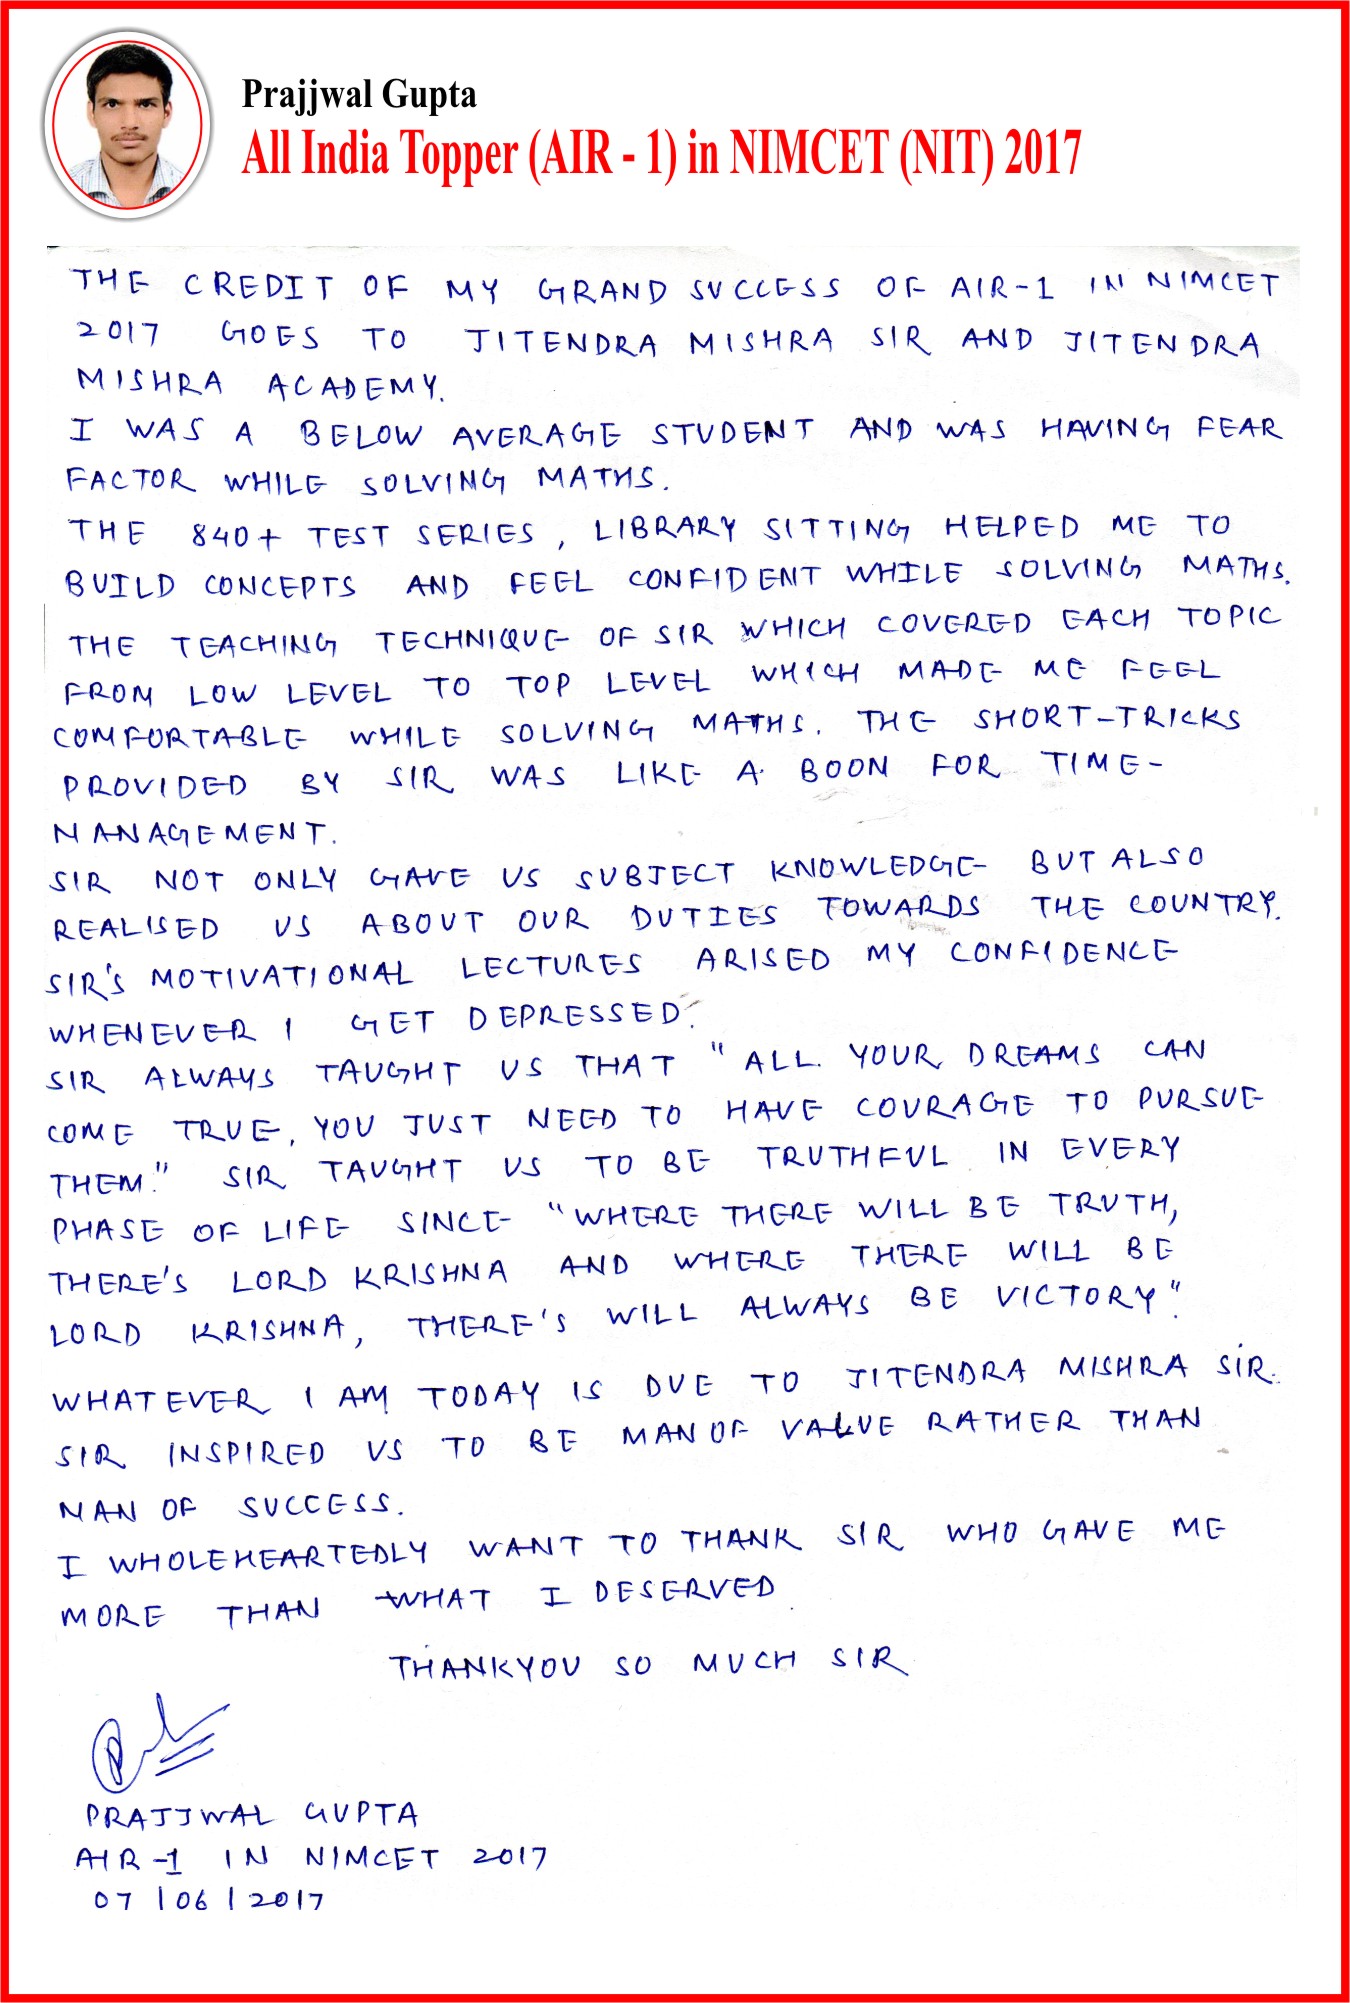 Prajjwal Gupta
All India Topper (AIR - 1) in NIMCET (NIT) 2017
THE CREDIT OF MY GRAND SUCCESS OF AIR-1 IN NIMCET
2017 GOES TO JITENDRA MISHRA SIR AND JITENDRA
MISHRA ACADEMY.
I WAS A BELOW AVERAGE STUDENT AND WAS HAVING FEAR
FACTOR WHILE SOLVING MATHS.
THE 840+ TEST SERIES, LIBRARY SITTING HELPED ME TO
BUILD CONCEPTS AND FEEL CONFIDENT WHILE SOLVING MATHS.
THE TEACHING TECHNIQUE OF SIR WHICH COVERED EACH TOPIC
FROM LOW LEVEL TO TOP LEVEL WHICH MADE ME FEEL
COMFORTABLE WHILE SOLVING MATHS. THE SHORT-TRICKS
PROVIDED BY SIR WAS LIKE A BOON FOR TIME-
MANAGEMENT.
SIR NOT ONLY GAVE US SUBJECT KNOWLEDGE BUT ALSO
REALISED US ABOUT OUR DUTIES TOWARDS THE COUNTRY.
SIR'S MOTIVATIONAL LECTURES ARISED MY CONFIDENCE
WHENEVER I GET DEPRESSED.
SIR ALWAYS TAUGHT US THAT "ALL YOUR DREAMS CAN
COME TRUE, YOU JUST NEED TO HAVE COURAGE TO PURSUE
THEM." SIR TAUGHT US TO BE TRUTHFUL IN EVERY
PHASE OF LIFE SINCE "WHERE THERE WILL BE TRUTH,
THERE'S LORD KRISHNA AND WHERE THERE WILL BE
LORD KRISHNA, THERE'S WILL ALWAYS BE VICTORY".
WHATEVER I AM TODAY IS DUE TO JITENDRA MISHRA SIR.
SIR INSPIRED US TO BE MAN OF VALUE RATHER THAN
MAN OF SUCCESS.
I WHOLEHEARTEDLY WANT TO THANK SIR WHO GAVE ME
MORE THAN WHAT I DESERVED
THANKYOU SO MUCH SIR
PRAJJWAL GUPTA
AIR-1 IN NIMCET 2017
07/06/2017